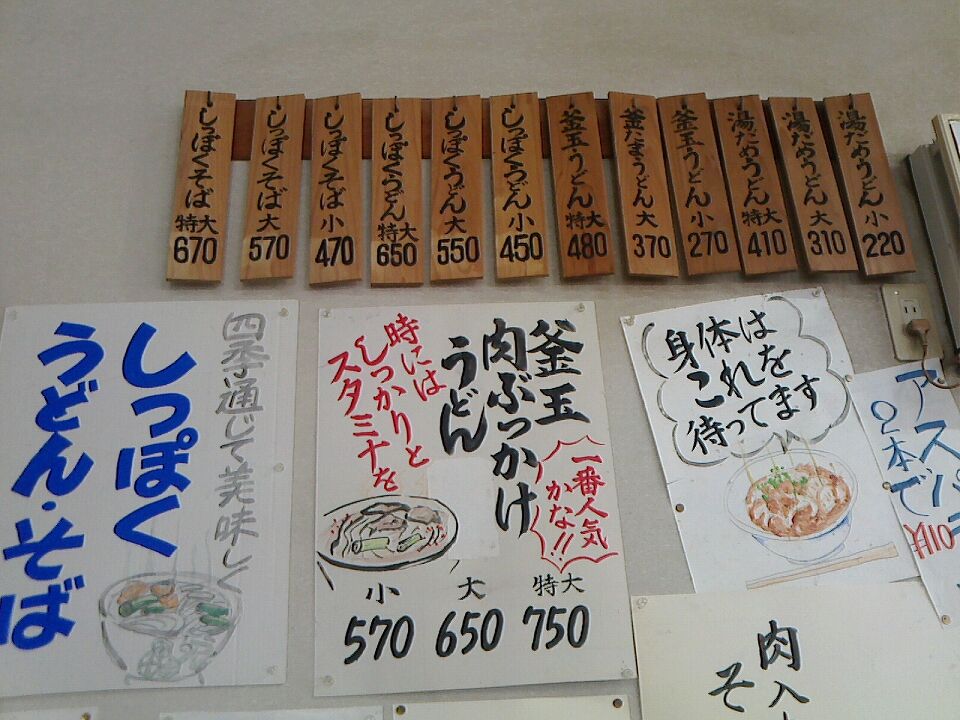 しっぽくそば 特大 670
しっぽくそば 大 570
しっぽくそば 小 470
しっぽくうどん 特大 650
しっぽくうどん 大 550
しっぽくうどん 小 450
釜玉うどん 特大 480
釜たまうどん 大 370
釜玉うどん 小 270
湯だめうどん 特大 410
湯だめうどん 大 310
湯だめうどん 小 220
四季通じて美味しく
しっぽく
うどん・そば
釜玉
肉ぶっかけ
うどん
時には
しっかりと
スタミナを
一番人気
かな!!
小 大 特大
570 650 750
身体は
これを
待ってます
アスパラ
2本で
110
肉入
そ